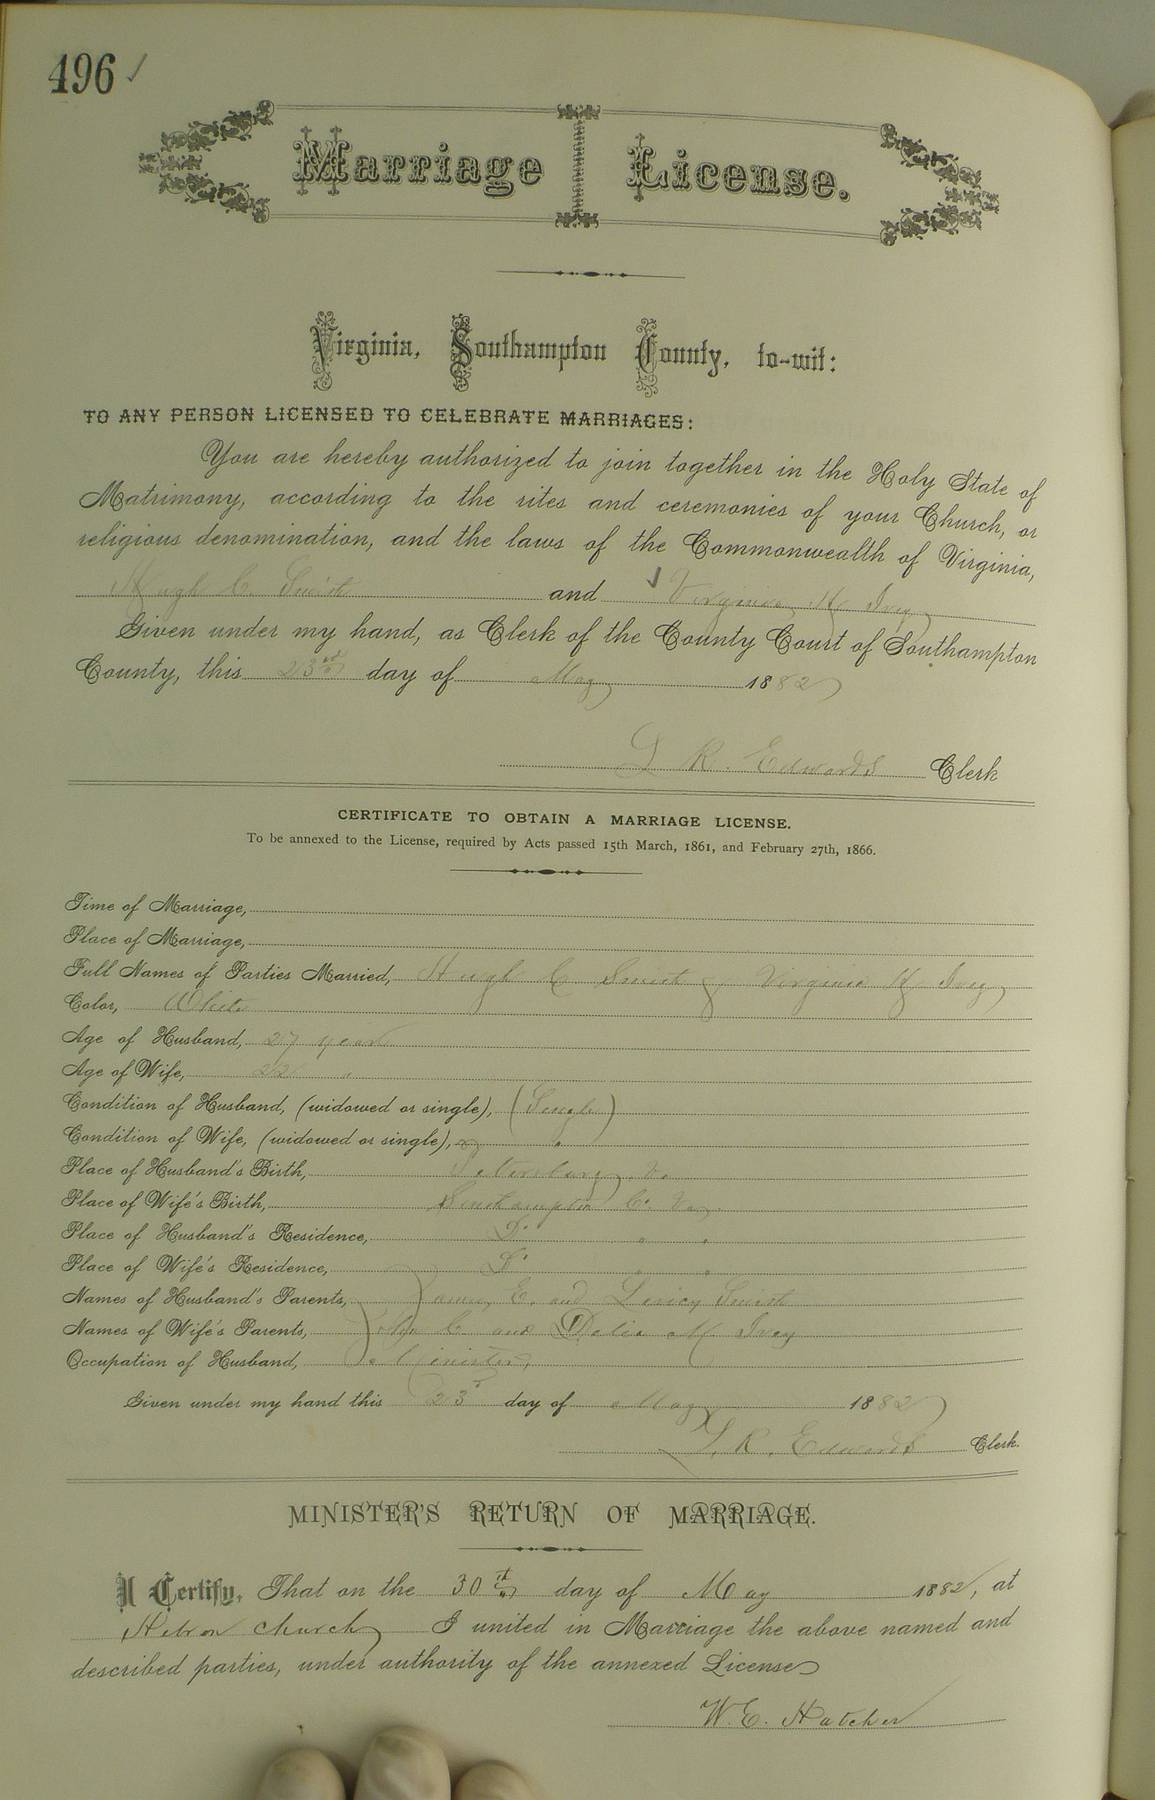 496 ✓
Marriage License.
Virginia, Southampton County, to-wit:
TO ANY PERSON LICENSED TO CELEBRATE MARRIAGES:
You are hereby authorized to join together in the Holy State of
Matrimony, according to the rites and ceremonies of your Church, or
religious denomination, and the laws of the Commonwealth of Virginia,
Hugh C. Smith and ✓ Virginia H Ivey
Given under my hand, as Clerk of the County Court of Southampton
County, this 23rd day of May 1882
L R. Edwards Clerk
CERTIFICATE TO OBTAIN A MARRIAGE LICENSE.
To be annexed to the License, required by Acts passed 15th March, 1861, and February 27th, 1866.
Time of Marriage,
Place of Marriage,
Full Names of Parties Married, Hugh C Smith & Virginia H Ivey
Color, White
Age of Husband, 27 years
Age of Wife, 22 "
Condition of Husband, (widowed or single), (Single)
Condition of Wife, (widowed or single), "
Place of Husband's Birth, Petersburg, Va
Place of Wife's Birth, Southampton Co. Va.
Place of Husband's Residence, Do " "
Place of Wife's Residence, Do " "
Names of Husband's Parents, James E. and Smith
Names of Wife's Parents, C and Delia M Ivey
Occupation of Husband, Minister
Given under my hand this 23d day of May 1882
L. R. Edwards Clerk.
MINISTER'S RETURN OF MARRIAGE.
I Certify, That on the 30th day of May 1882, at
Hebron Church I united in Marriage the above named and
described parties, under authority of the annexed License
W. E. Hatcher